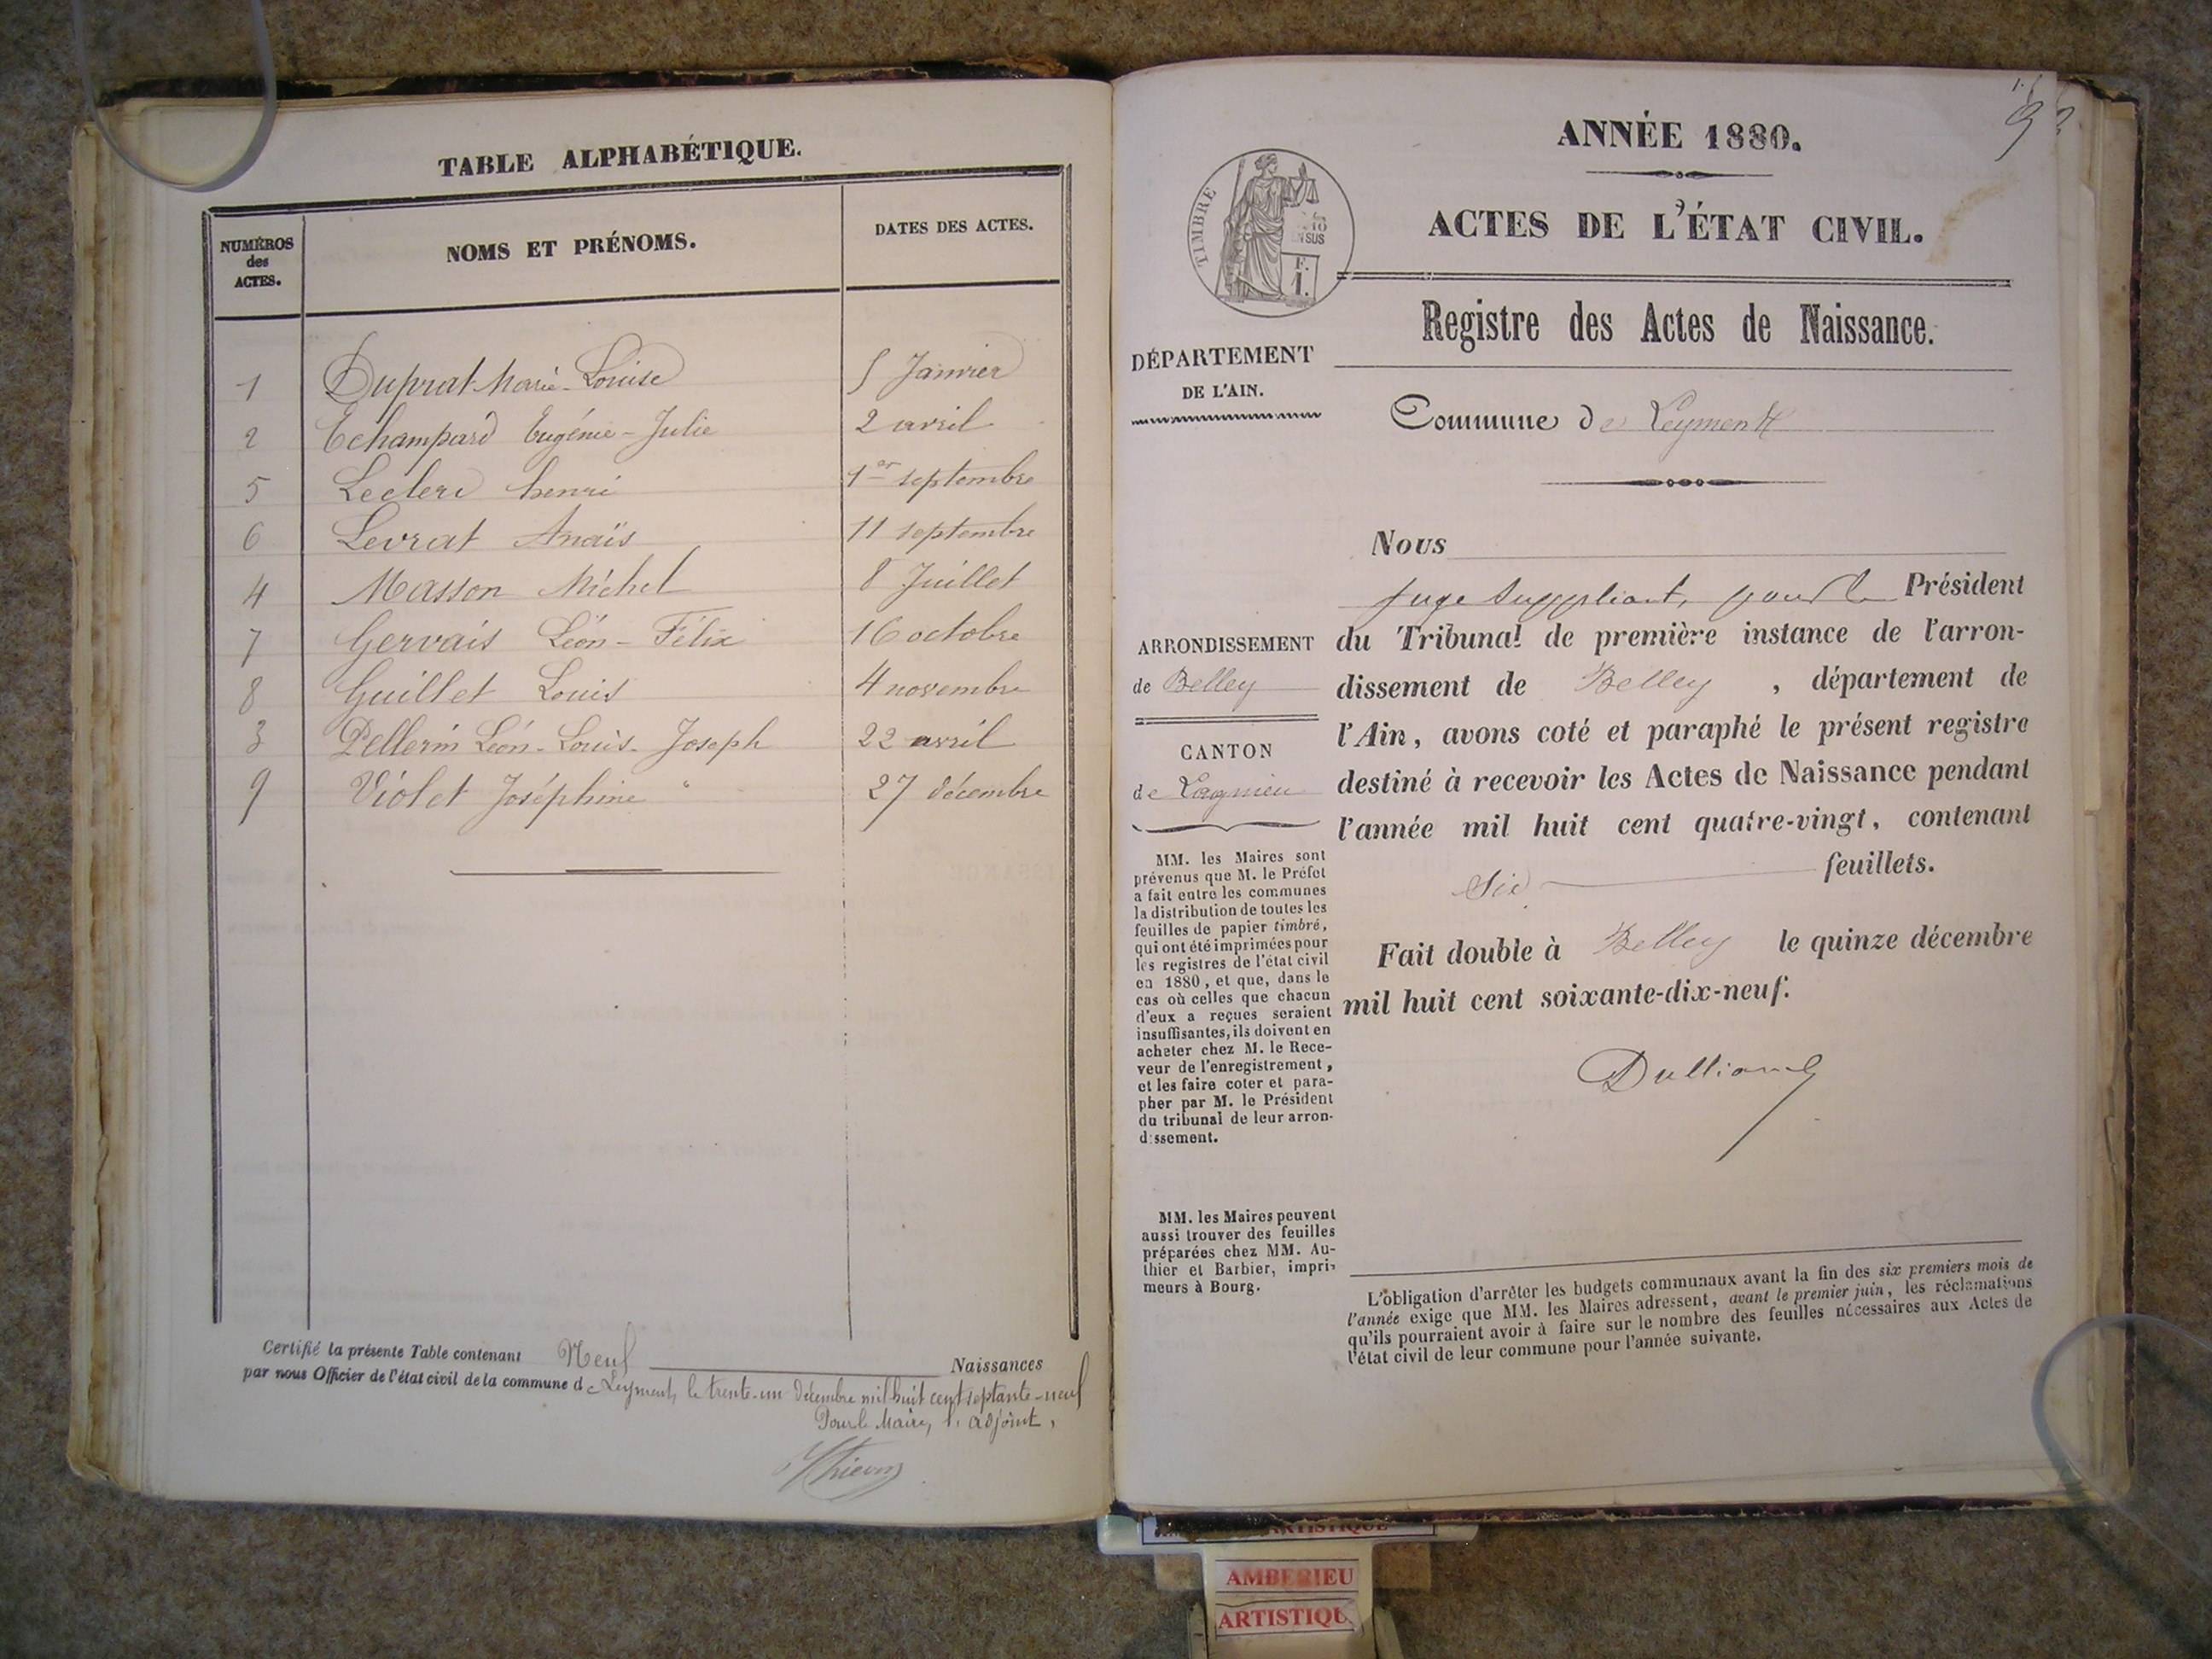 TABLE ALPHABÉTIQUE.
NUMÉROS des ACTES.
NOMS ET PRÉNOMS.
DATES DES ACTES.
1 Duprat Marie-Louise 5 Janvier
2 Echampard Eugénie-Julie 2 avril
5 Leclerc henri 1er septembre
6 Levrat Anaïs 11 septembre
4 Masson Michel 8 Juillet
7 Gervais Léon-Félix 16 octobre
8 Guillet Louis 4 novembre
3 Pellerin Léon-Louis-Joseph 22 avril
9 Violet Joséphine 27 décembre
Certifié la présente Table contenant Neuf Naissances
par nous Officier de l'état civil de la commune de Leyment, le trente-un décembre mil huit cent septante-neuf
Pour le Maire, l'adjoint,
ANNÉE 1880.
TIMBRE
EN SUS
F.
1.
ACTES DE L'ÉTAT CIVIL.
Registre des Actes de Naissance.
DÉPARTEMENT
DE L'AIN.
Commune de Leyment
Nous
juge suppléant, pour le Président
du Tribunal de première instance de l'arron-
dissement de Belley, département de
l'Ain, avons coté et paraphé le présent registre
destiné à recevoir les Actes de Naissance pendant
l'année mil huit cent quatre-vingt, contenant
Six feuillets.
Fait double à Belley le quinze décembre
mil huit cent soixante-dix-neuf.
ARRONDISSEMENT
de Belley
CANTON
de Lagnieu
MM. les Maires sont
prévenus que M. le Préfet
a fait entre les communes
la distribution de toutes les
feuilles de papier timbré,
qui ont été imprimées pour
les registres de l'état civil
en 1880, et que, dans le
cas où celles que chacun
d'eux a reçues seraient
insuffisantes, ils doivent en
acheter chez M. le Rece-
veur de l'enregistrement,
et les faire coter et para-
pher par M. le Président
du tribunal de leur arron-
dissement.
MM. les Maires peuvent
aussi trouver des feuilles
préparées chez MM. Au-
thier et Barbier, impri-
meurs à Bourg.
L'obligation d'arrêter les budgets communaux avant la fin des six premiers mois de
l'année exige que MM. les Maires adressent, avant le premier juin, les réclamations
qu'ils pourraient avoir à faire sur le nombre des feuilles nécessaires aux Actes de
l'état civil de leur commune pour l'année suivante.
ARTISTIQUE
AMBERIEU
ARTISTIQU